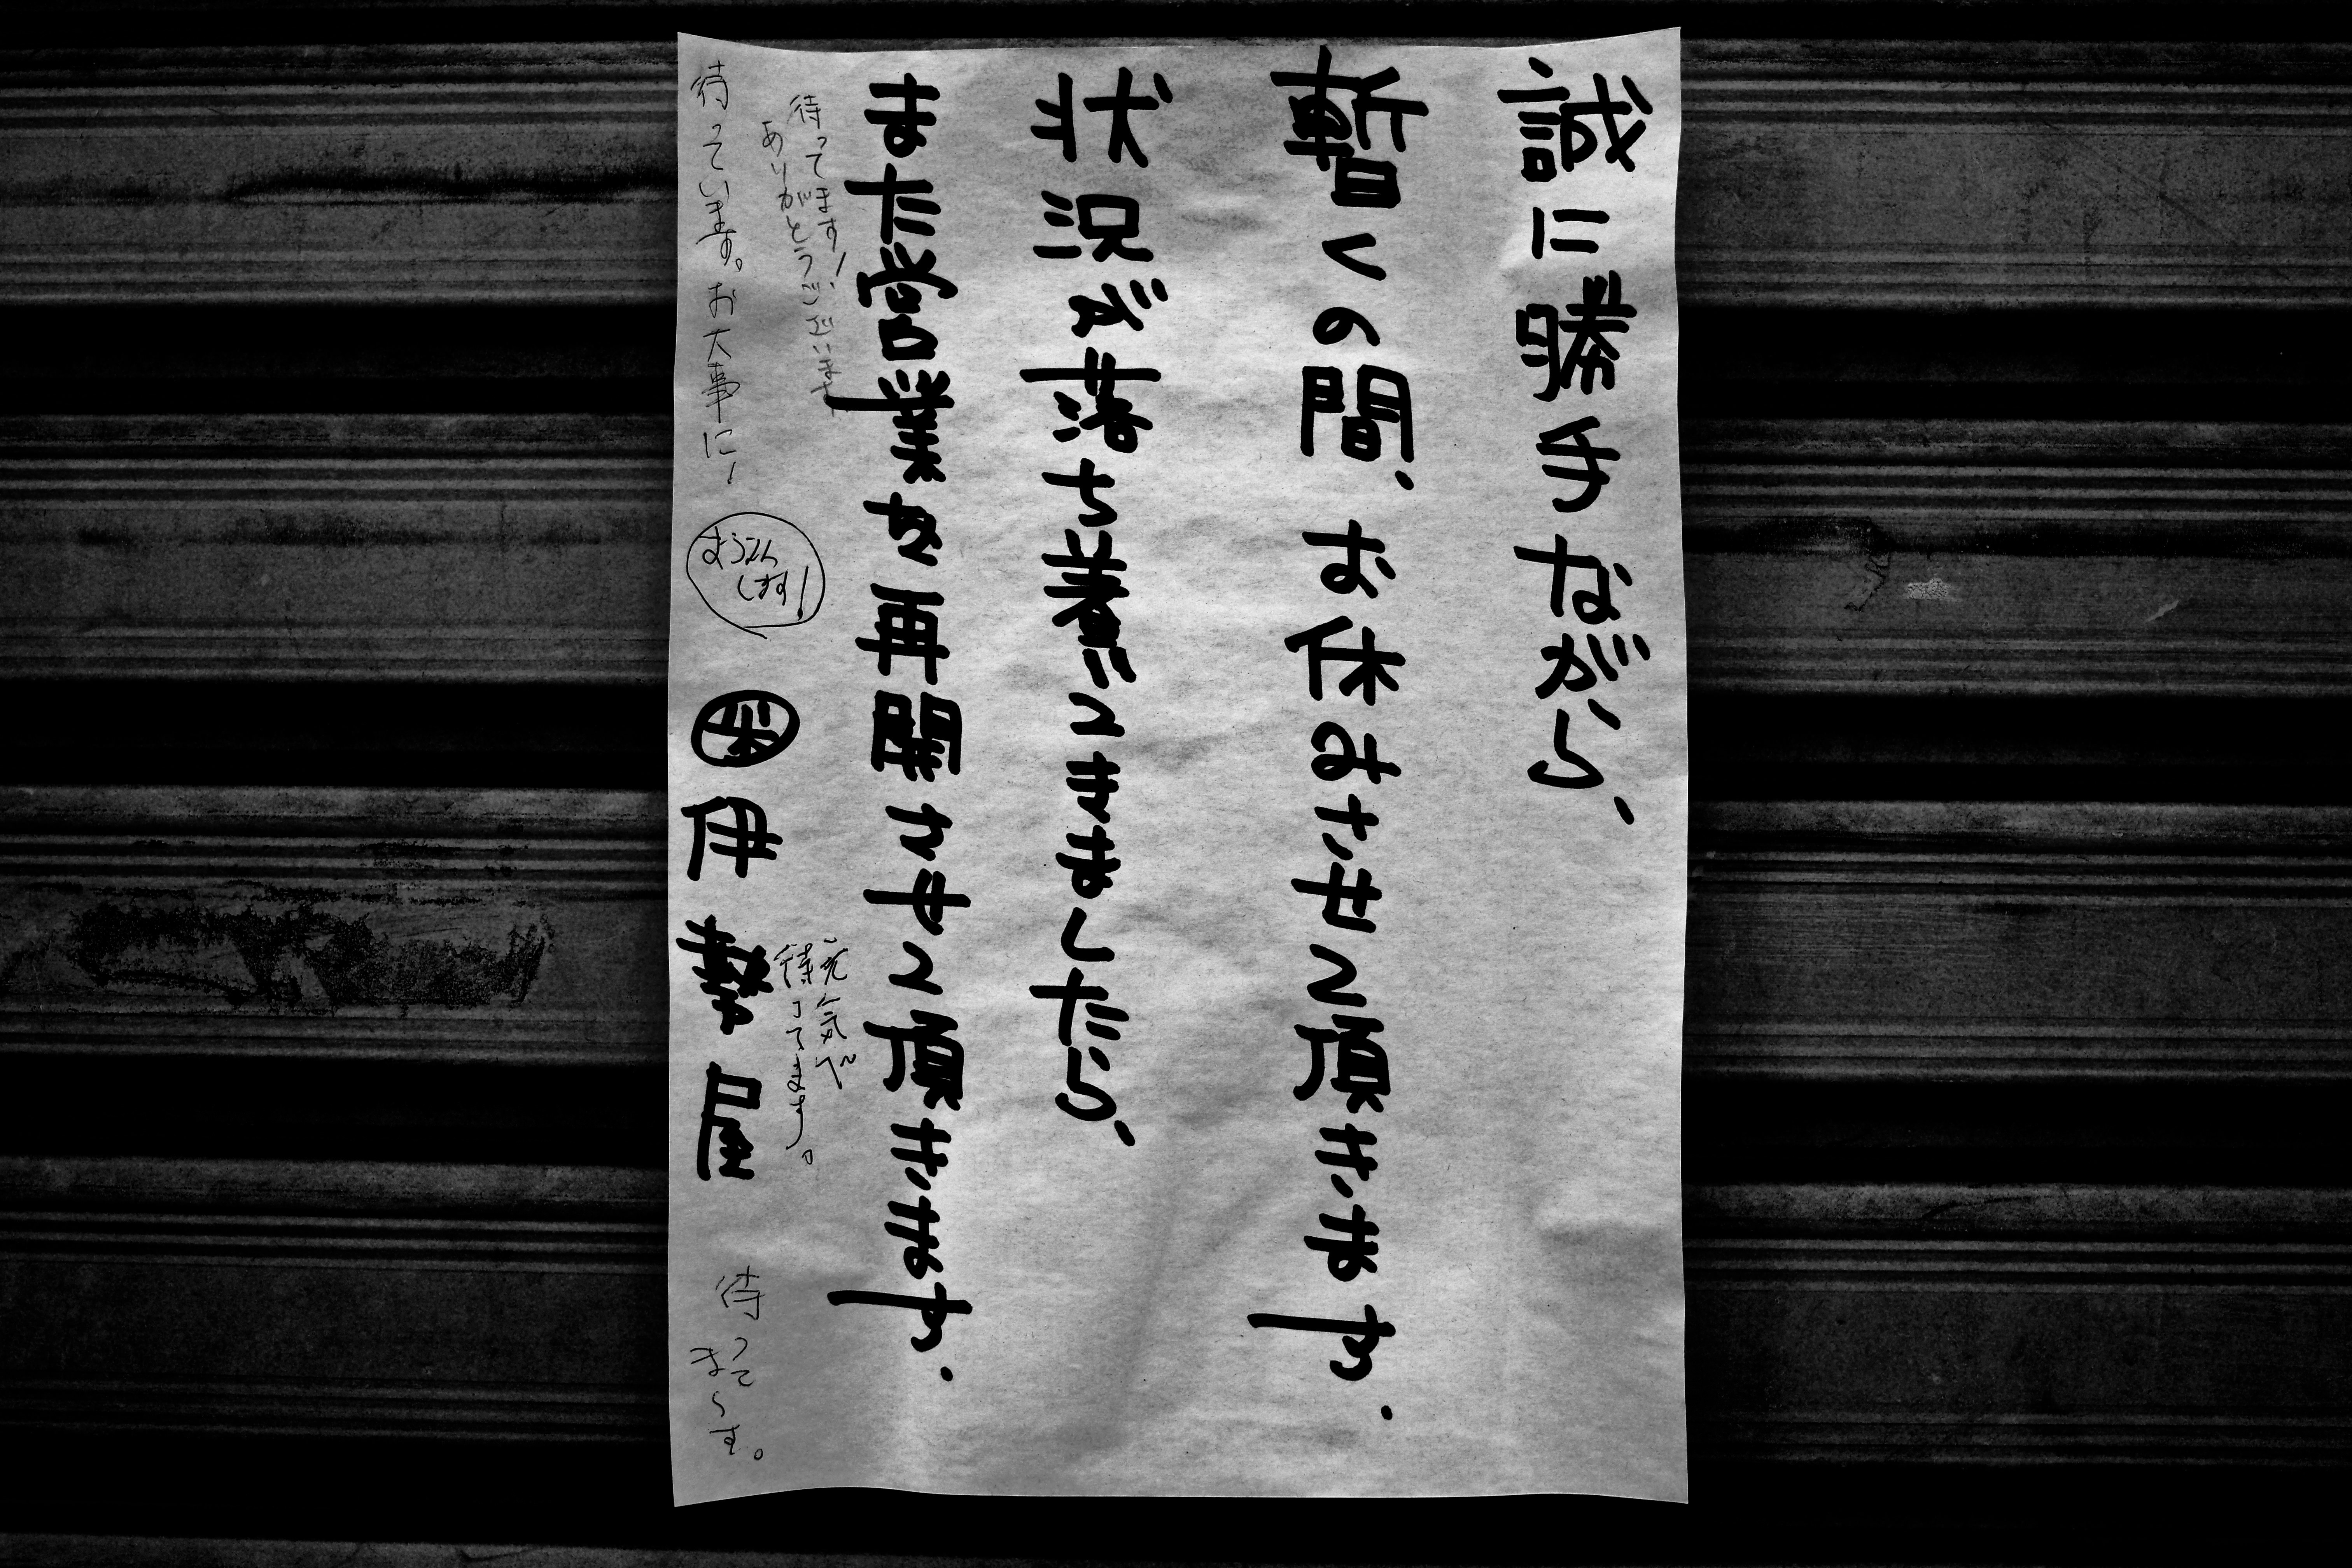 誠に勝手ながら、
暫くの間、お休みさせて頂きます.
状況が落ち着いてきましたら、
また営業を再開させて頂きます.
伊勢屋
待ってます!
ありがとうございます
待っています。お大事に!
おうえん
します!
元気で
待ってます。
待って
ま〜す。